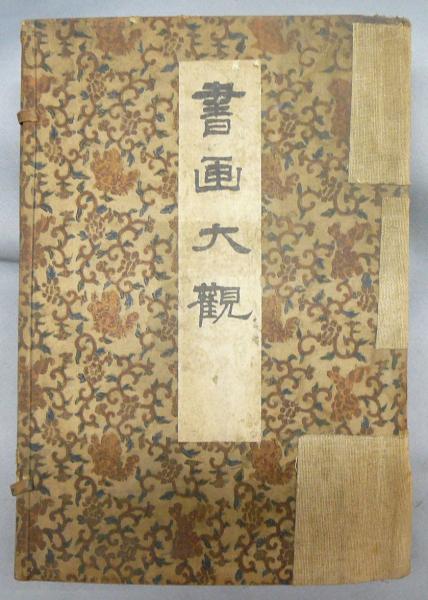 書画大觀